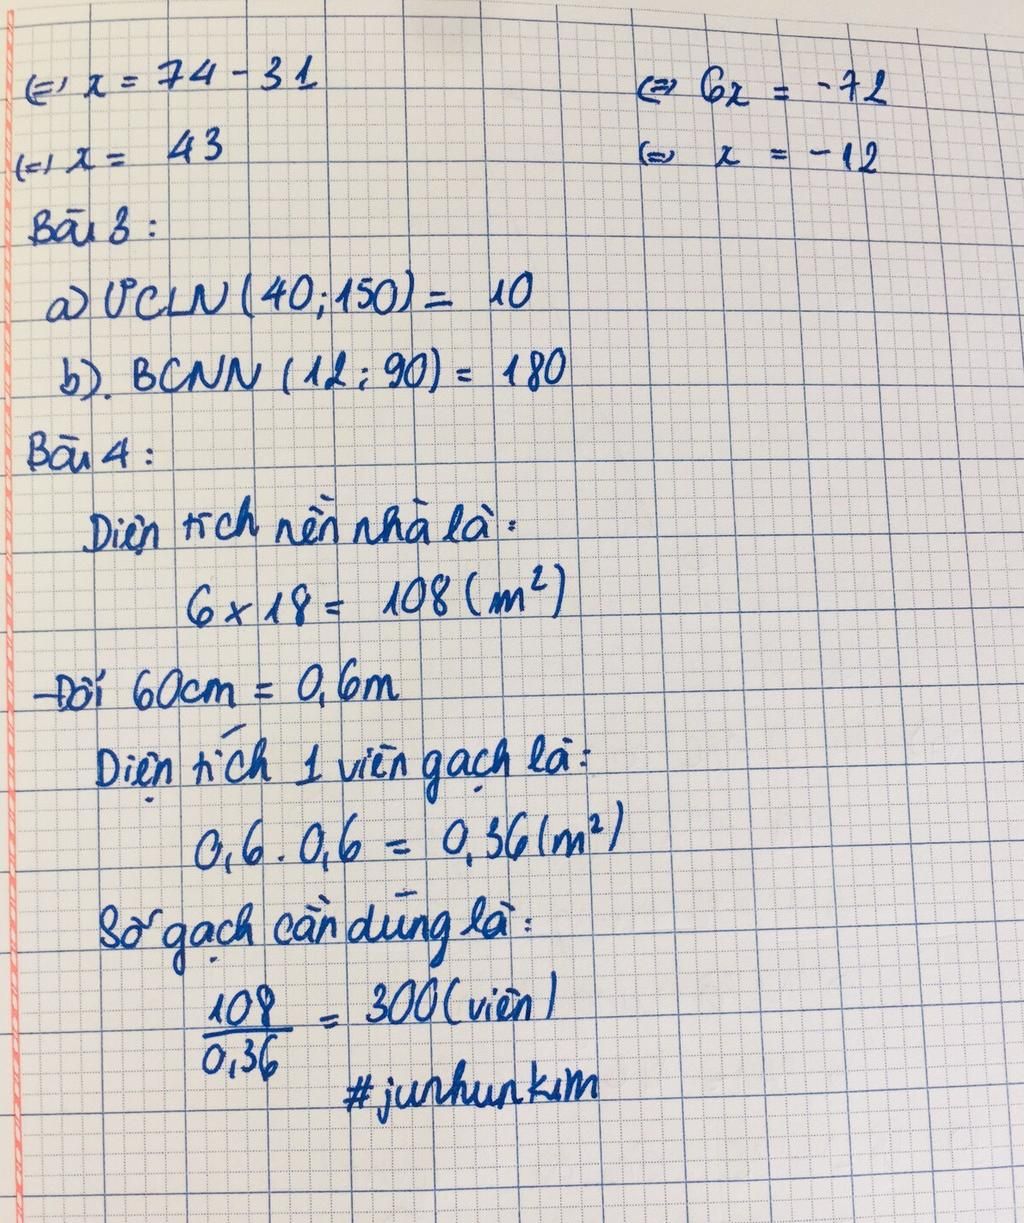 (=) x = 74 - 31
(=) x = 43
(=) 6x = -72
(=) x = -12
Bài 3 :
a) ƯCLN (40; 150) = 10
b). BCNN (12; 90) = 180
Bài 4 :
Diện tích nền nhà là :
6 x 18 = 108 (m²)
Đổi 60cm = 0,6m
Diện tích 1 viên gạch là :
0,6 . 0,6 = 0,36 (m²)
Số gạch cần dùng là :
108/0,36 = 300 (viên)
#junhunkim